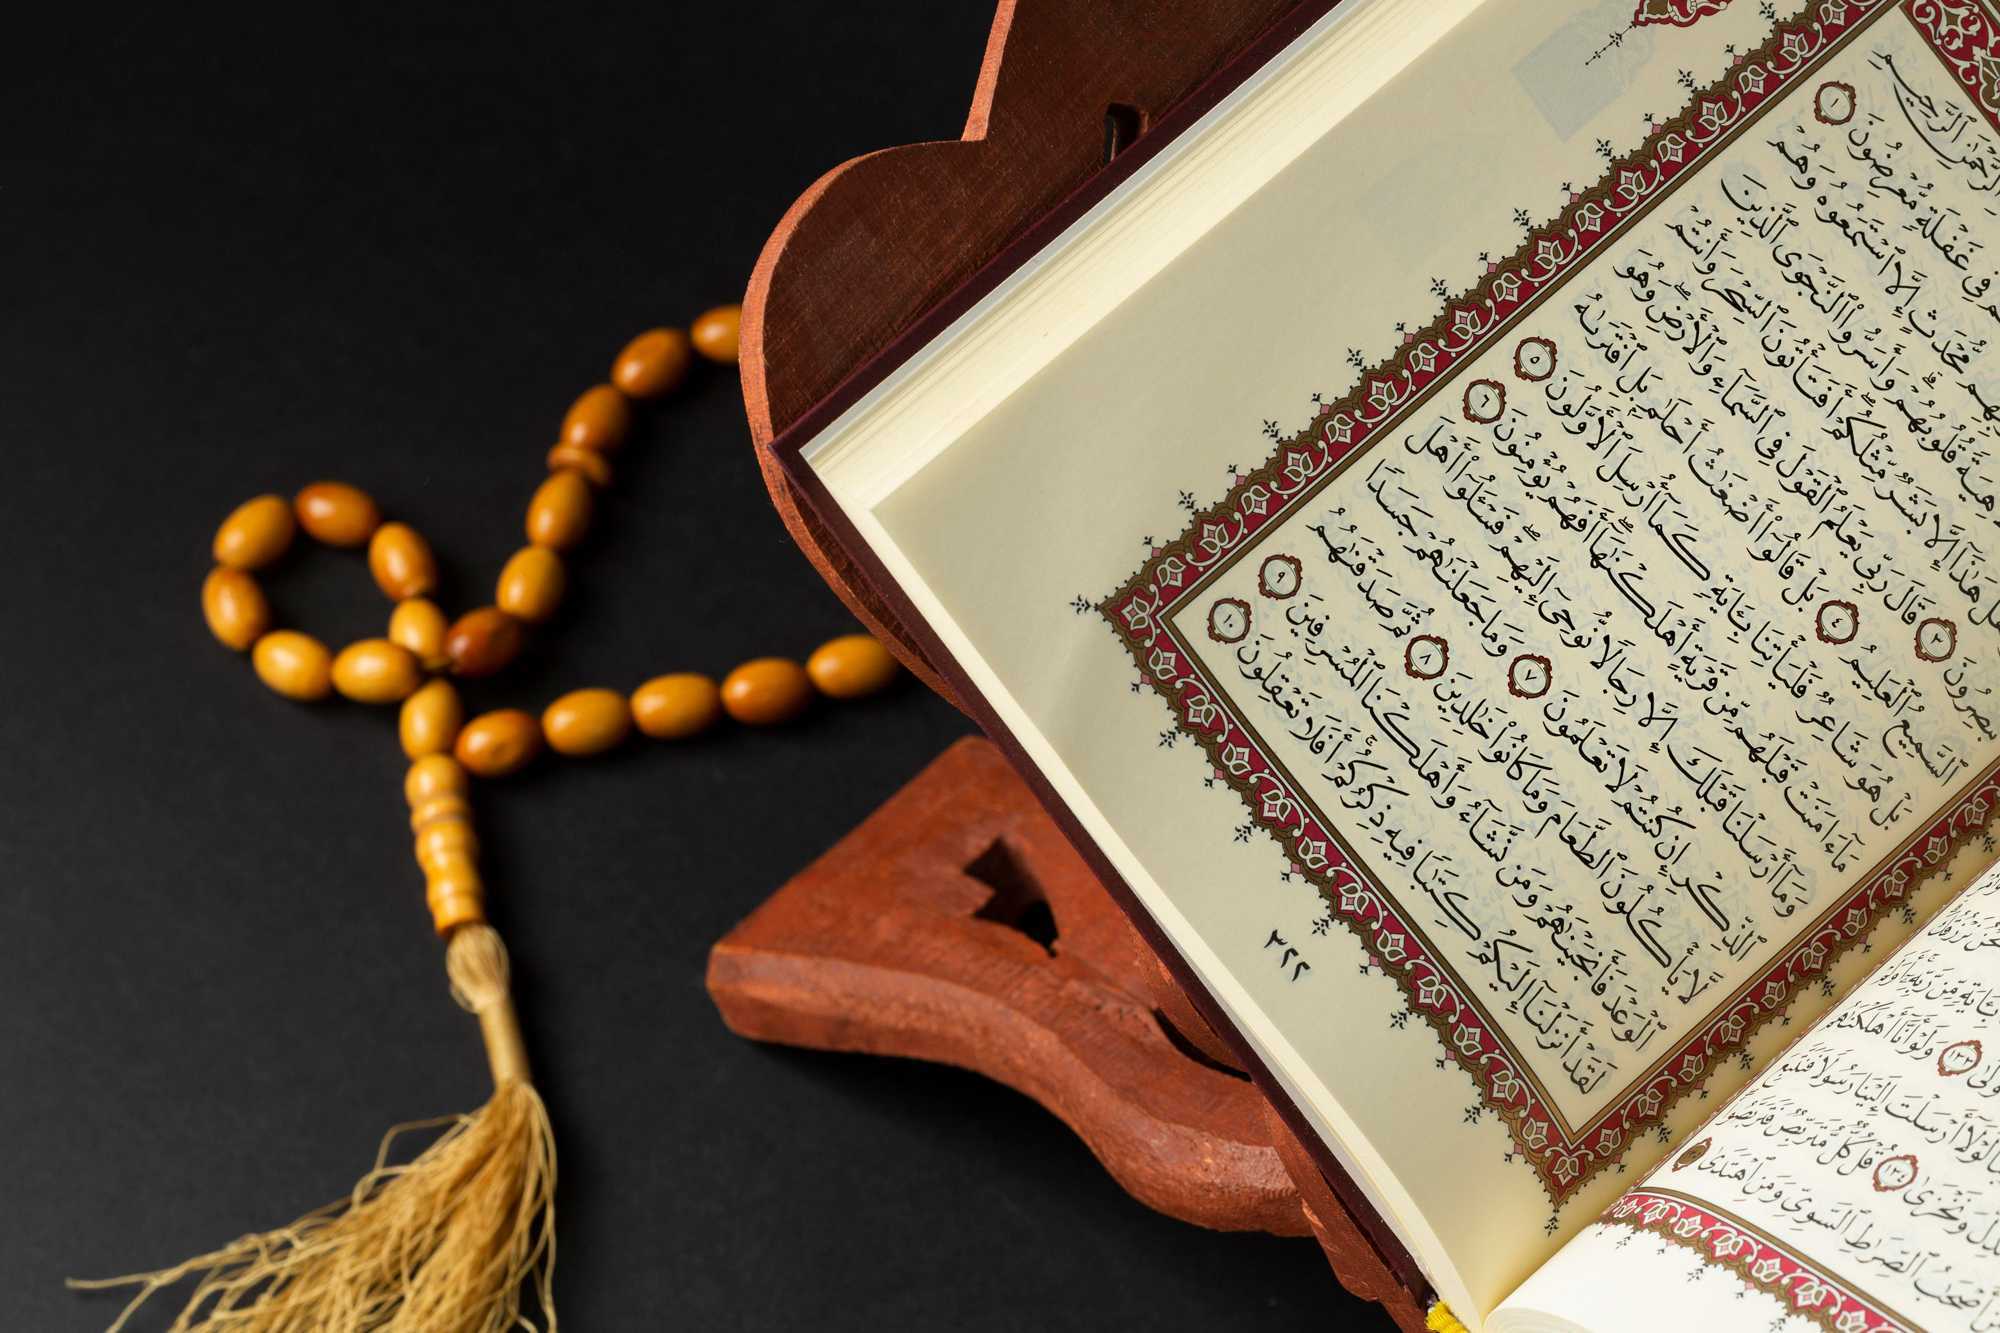 بِـَٔايَةٍ مِّن رَّبِّهِۦٓ أَوَلَمْ
١٣٣ وَلَوْ أَنَّآ أَهْلَكْنَٰهُم
لَوْلَآ أَرْسَلْتَ إِلَيْنَا رَسُولًا فَنَتَّبِعَ
وَنَخْزَىٰ ١٣٤ قُلْ كُلٌّ مُّتَرَبِّصٌ فَتَرَبَّصُوا۟
أَصْحَٰبُ ٱلصِّرَٰطِ ٱلسَّوِىِّ وَمَنِ ٱهْتَدَىٰ
ٱلرَّحْمَٰنِ ٱلرَّحِيمِ
فِى غَفْلَةٍ مُّعْرِضُونَ ١
مُّحْدَثٍ إِلَّا ٱسْتَمَعُوهُ وَهُمْ
قُلُوبُهُمْ وَأَسَرُّوا۟ ٱلنَّجْوَى ٱلَّذِينَ
هَلْ هَٰذَآ إِلَّا بَشَرٌ مِّثْلُكُمْ أَفَتَأْتُونَ ٱلسِّحْرَ وَأَنتُمْ
تُبْصِرُونَ ٣ قَالَ رَبِّى يَعْلَمُ ٱلْقَوْلَ فِى ٱلسَّمَآءِ وَٱلْأَرْضِ وَهُوَ
ٱلسَّمِيعُ ٱلْعَلِيمُ ٤ بَلْ قَالُوٓا۟ أَضْغَٰثُ أَحْلَٰمٍۭ بَلِ ٱفْتَرَىٰهُ
بَلْ هُوَ شَاعِرٌ فَلْيَأْتِنَا بِـَٔايَةٍ كَمَآ أُرْسِلَ ٱلْأَوَّلُونَ ٥
مَآ ءَامَنَتْ قَبْلَهُم مِّن قَرْيَةٍ أَهْلَكْنَٰهَآ أَفَهُمْ يُؤْمِنُونَ ٦
وَمَآ أَرْسَلْنَا قَبْلَكَ إِلَّا رِجَالًا نُّوحِىٓ إِلَيْهِمْ فَسْـَٔلُوٓا۟ أَهْلَ
ٱلذِّكْرِ إِن كُنتُمْ لَا تَعْلَمُونَ ٧ وَمَا جَعَلْنَٰهُمْ جَسَدًا
لَّا يَأْكُلُونَ ٱلطَّعَامَ وَمَا كَانُوا۟ خَٰلِدِينَ ٨ ثُمَّ صَدَقْنَٰهُمُ
ٱلْوَعْدَ فَأَنجَيْنَٰهُمْ وَمَن نَّشَآءُ وَأَهْلَكْنَا ٱلْمُسْرِفِينَ ٩
لَقَدْ أَنزَلْنَآ إِلَيْكُمْ كِتَٰبًا فِيهِ ذِكْرُكُمْ أَفَلَا تَعْقِلُونَ ١٠
٣٢٢